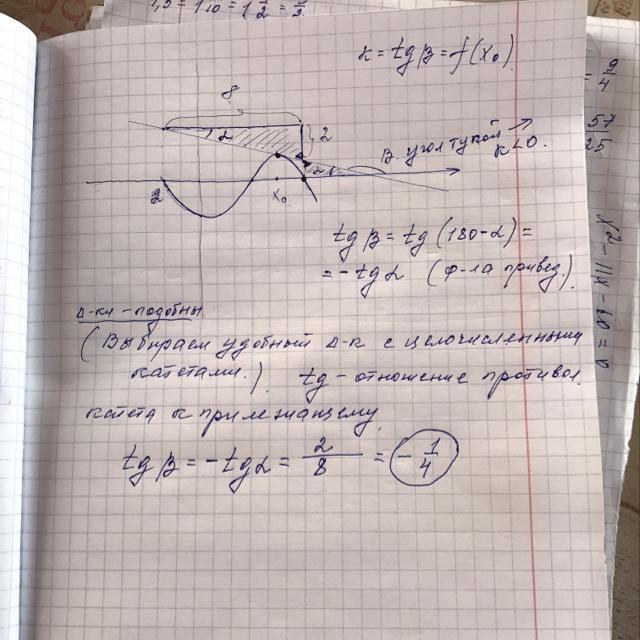 1,5 = 1,0 = 1 1/2 = 3/2
k = tg β = f(x₀)
8
α
2
β угол тупой →
k < 0.
α
2
x₀
tg β = tg (180 - α) =
= - tg α (ф-ла привед.)
Δ-ки - подобны
(Выбираем удобный Δ-к с целочисленными
катетами.) tg - отношение противол.
катета к прилежащему.
tg β = - tg α = 2/8 = - 1/4
- 9/4
57/25
x² - 11x - 60 = 0